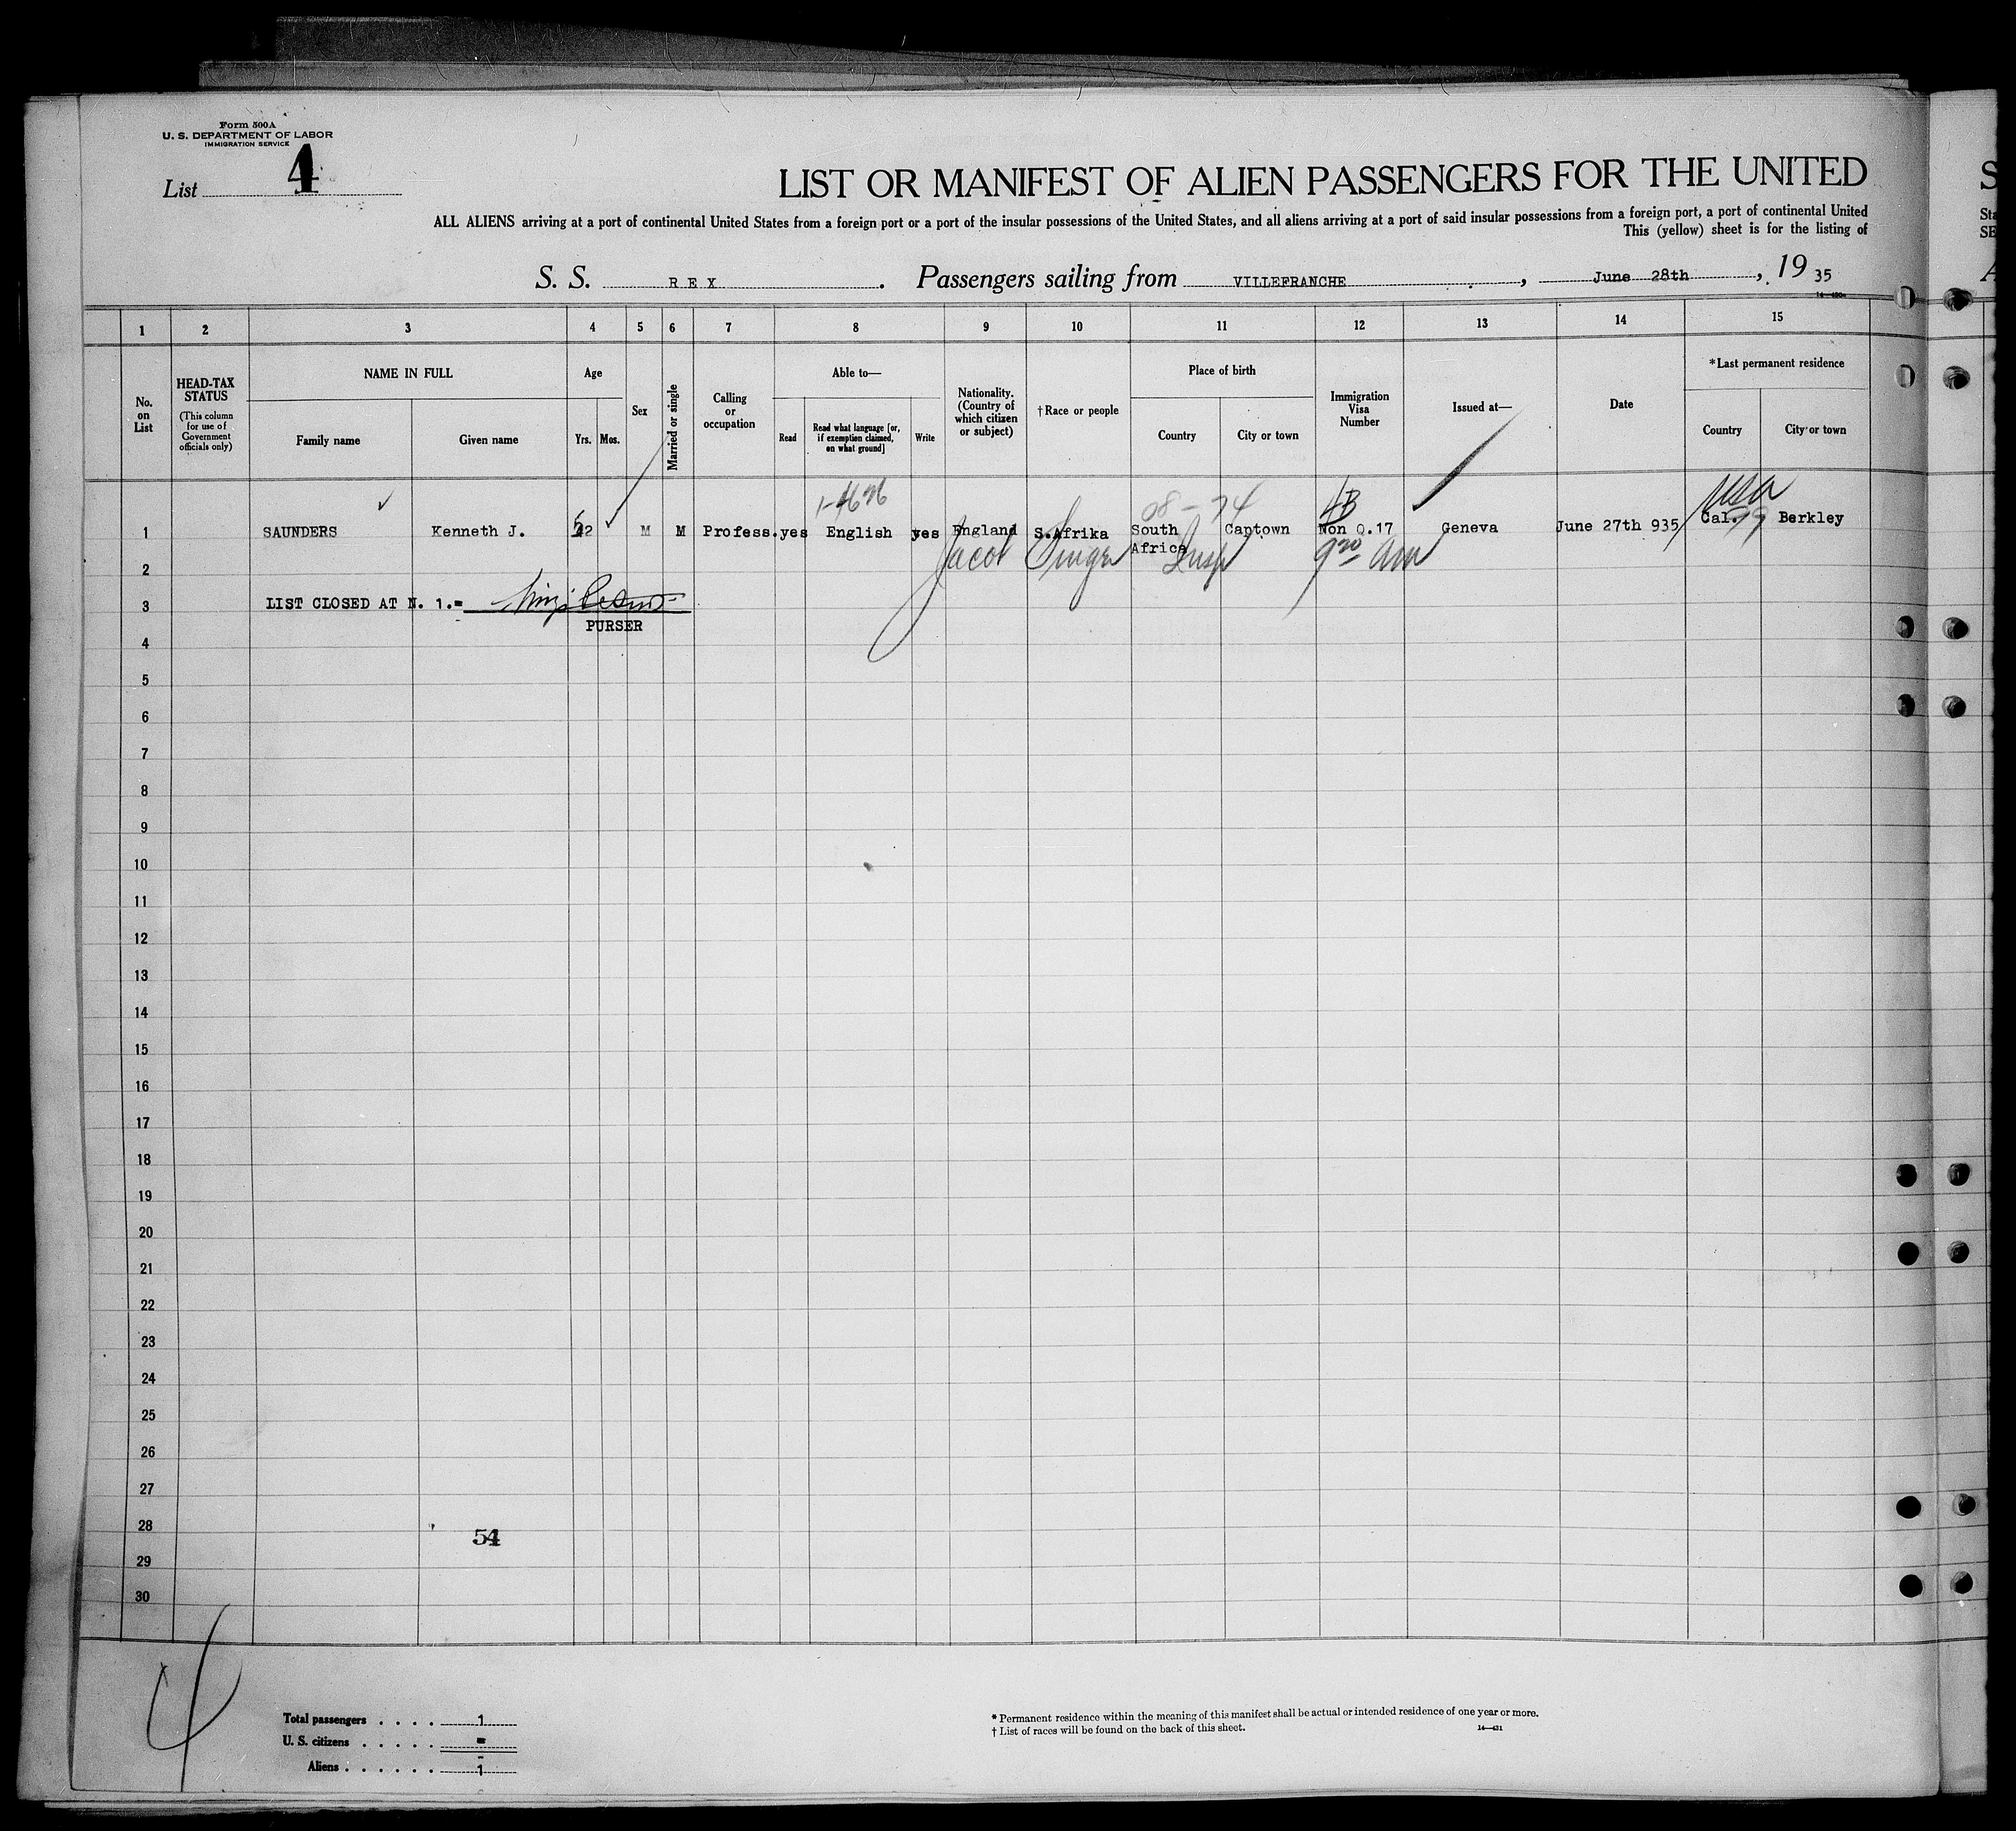 Form 500A
U. S. DEPARTMENT OF LABOR
IMMIGRATION SERVICE
List 4
LIST OR MANIFEST OF ALIEN PASSENGERS FOR THE UNITED
ALL ALIENS arriving at a port of continental United States from a foreign port or a port of the insular possessions of the United States, and all aliens arriving at a port of said insular possessions from a foreign port, a port of continental United
This (yellow) sheet is for the listing of
S. S. REX. Passengers sailing from VILLEFRANCHE, June 28th, 1935
1 2 3 4 5 6 7 8 9 10 11 12 13 14 15
No. on List
HEAD-TAX STATUS
(This column for use of Government officials only)
NAME IN FULL
Family name
Given name
Age
Yrs.
Mos.
Sex
Married or single
Calling or occupation
Able to—
Read
Read what language [or, if exemption claimed, on what ground]
Write
Nationality. (Country of which citizen or subject)
†Race or people
Place of birth
Country
City or town
Immigration Visa Number
Issued at—
Date
*Last permanent residence
Country
City or town
08-74 4B USA
1 SAUNDERS Kenneth J. 52 M M Profess. yes English yes England S.Afrika South Africa Captown Non Q.17 Geneva June 27th 935 Cal. 99 Berkley
2 Jacob Singer Insp 9 20 AM
3 LIST CLOSED AT N. 1.=
PURSER
4
5
6
7
8
9
10
11
12
13
14
15
16
17
18
19
20
21
22
23
24
25
26
27
28 54
29
30
4
Total passengers . . . . 1
U. S. citizens . . . . . =
Aliens . . . . . . 1
* Permanent residence within the meaning of this manifest shall be actual or intended residence of one year or more.
† List of races will be found on the back of this sheet.
14—431